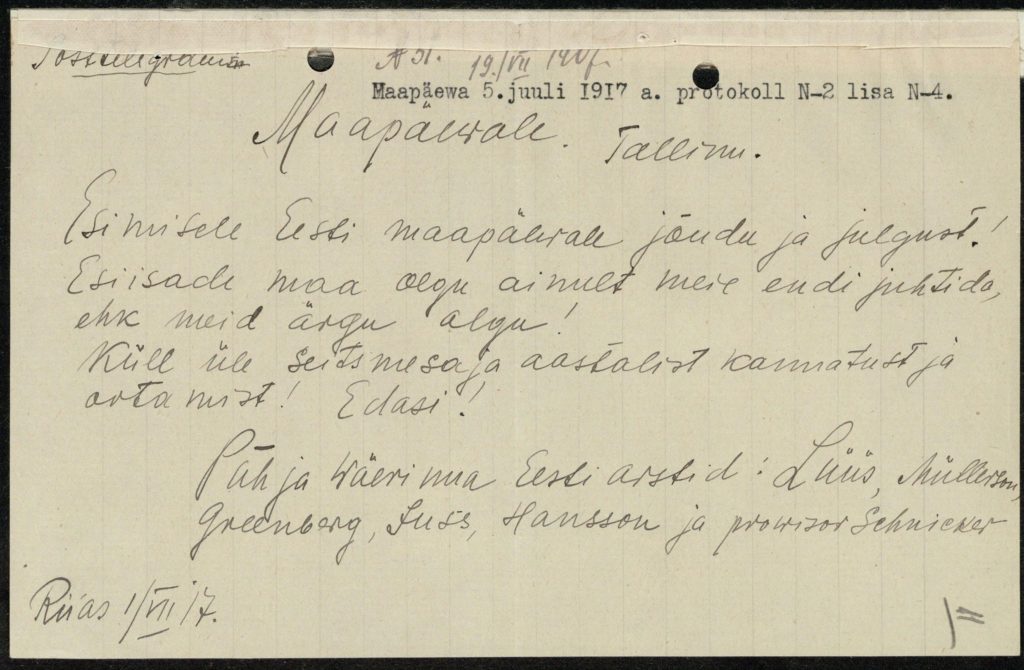 Posttelegramm
A 31. 19/VII 1917.
Maapäewa 5.juuli 1917 a. protokoll N-2 lisa N-4.
Maapäewale. Tallinn.
Esimisele Eesti maapäewale jõudu ja julgust!
Esiisade maa olgu ainult meie endi juhtida,
ehk meid ärgu olgu!
Küll üle seitsmesaja aastalist kannatust ja
ootamist! Edasi!
Põhja wäerinna Eesti arstid: Lüüs, Müllerson,
Greenberg, Juss, Hansson ja prowisor Schnicker
Riias 1/VII 17.